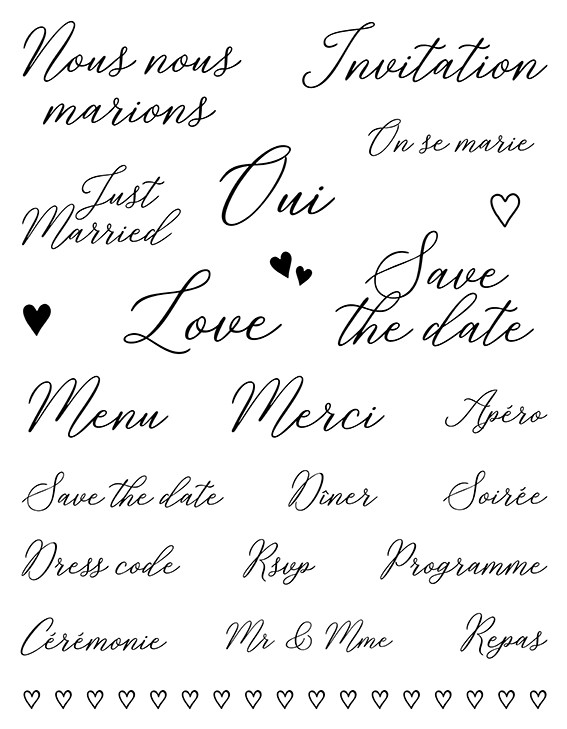 Nous nous
marions
Invitation
On se marie
Just
Married
Oui
Save
the date
Love
Menu
Merci
Apéro
Save the date
Dîner
Soirée
Dress code
Rsvp
Programme
Cérémonie
Mr & Mme
Repas